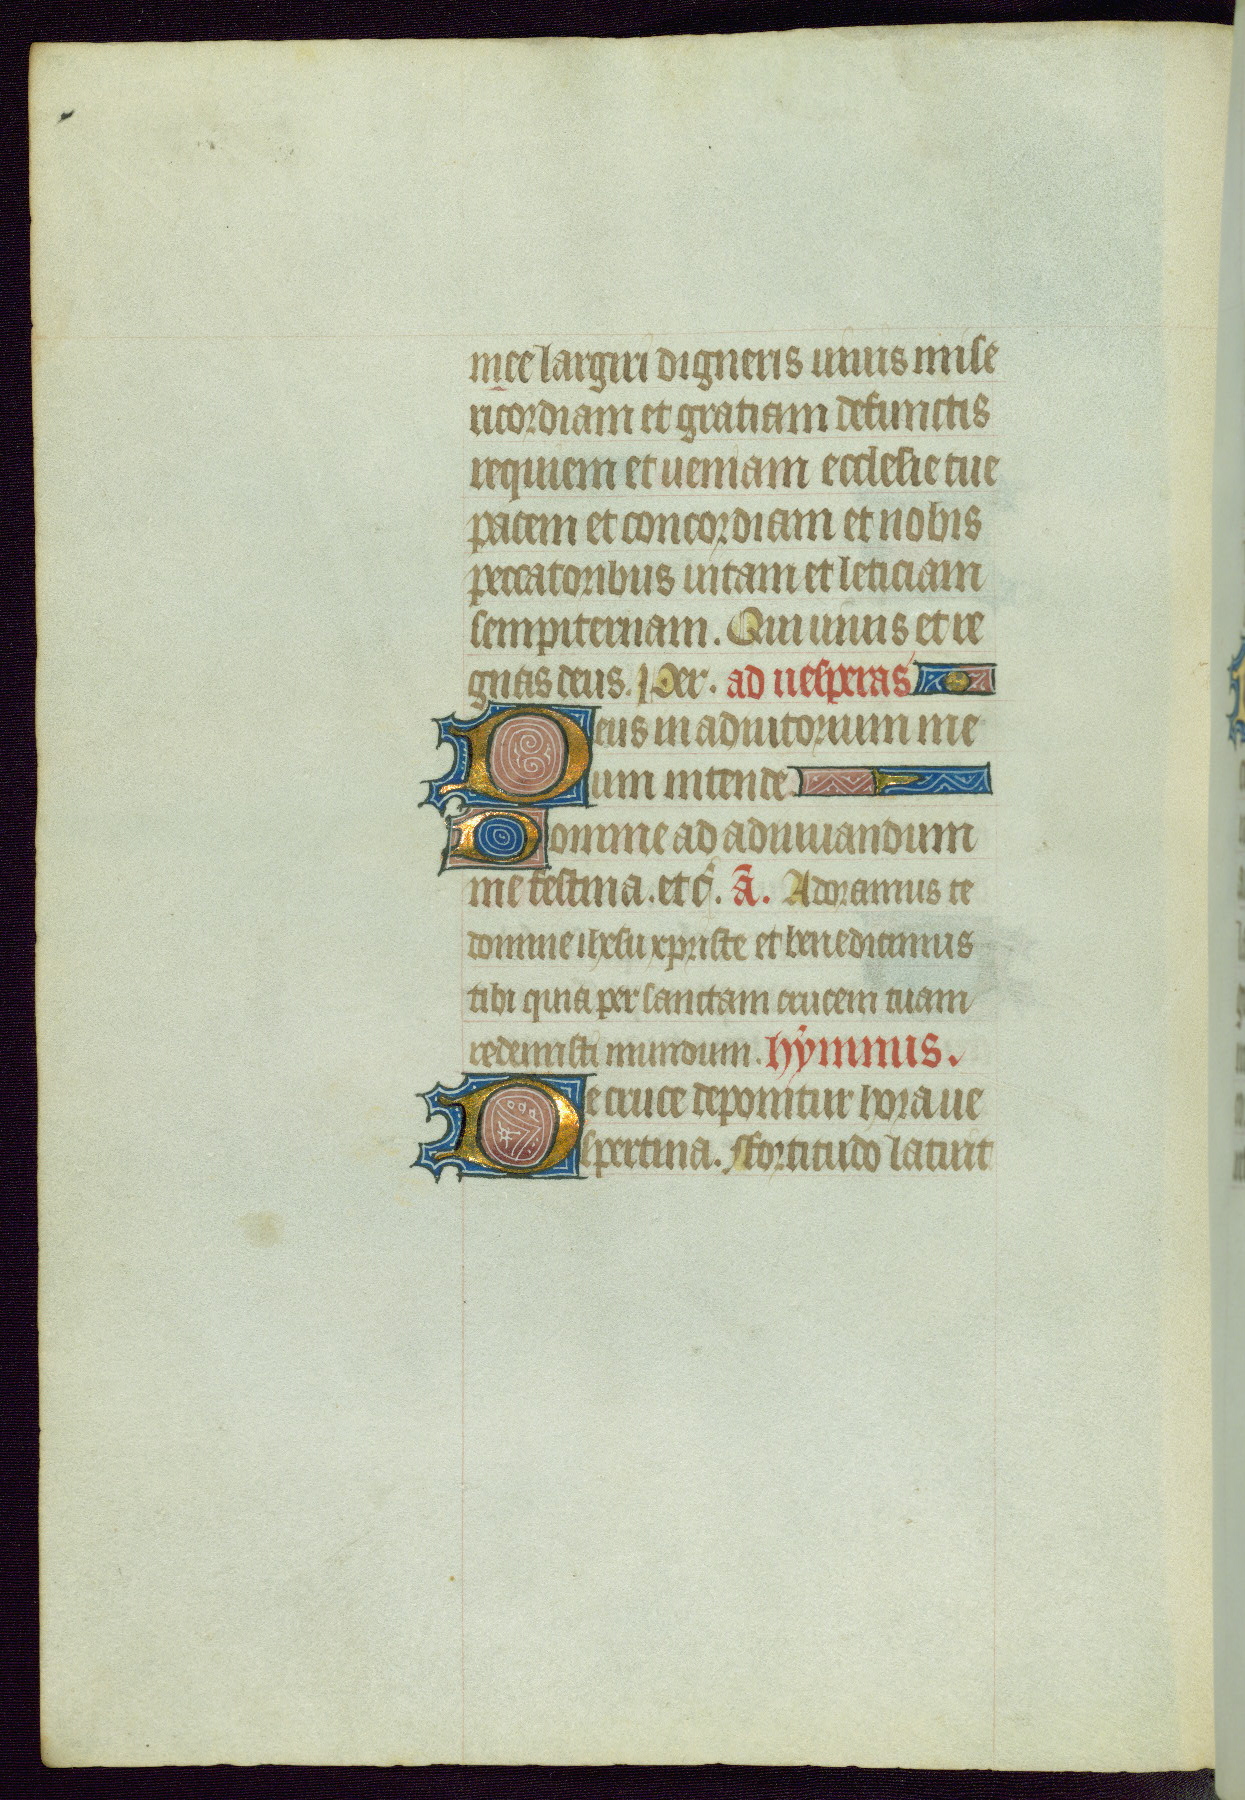 mee largiri digneris uiuis mise
ricordiam et gratiam defunctis
requiem et ueniam ecclesie tue
pacem et concordiam et nobis
peccatoribus uitam et leticiam
sempiternam. Qui uiuis et re
gnas deus. Per. ad uesperas
Deus in adiutorium me
um intende
Domine ad adiuuandum
me festina. etc̄. ā. Adoramus te
domine ihesu xpriste et benedicimus
tibi quia per sanctam crucem tuam
redemisti mundum. hymnus.
De cruce deponitur hora ue
spertina. ffortitudo latuit